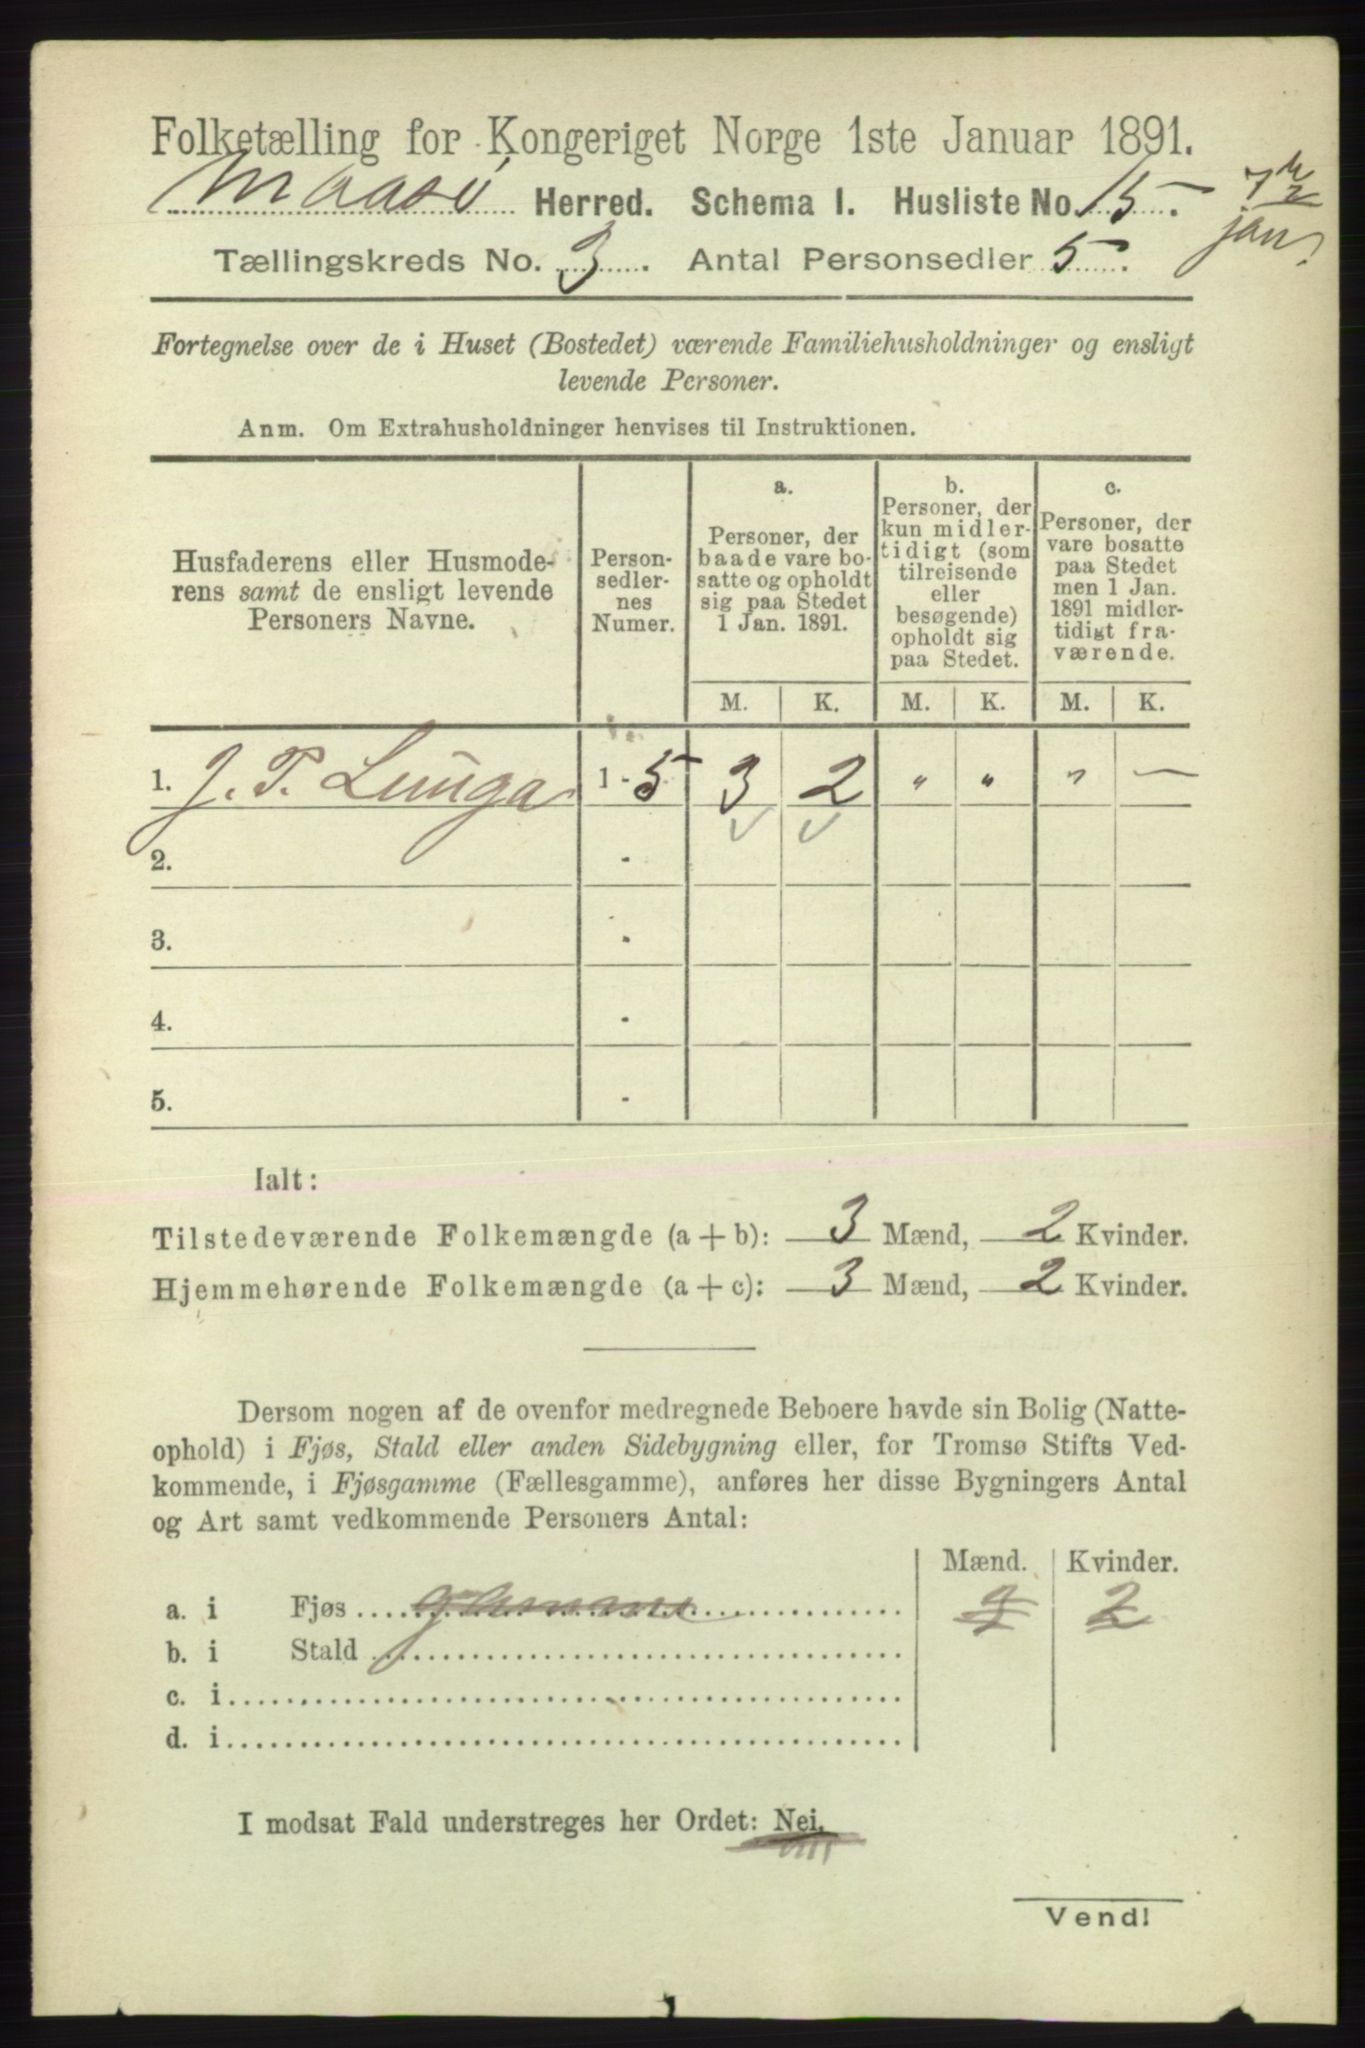 Folketælling for Kongeriget Norge 1ste Januar 1891.
Maasö Herred. Schema I. Husliste No. 15.
jan.
Tællingskreds No. 3. Antal Personsedler 5.
Fortegnelse over de i Huset (Bostedet) værende Familiehusholdninger og ensligt
levende Personer.
Anm. Om Extrahusholdninger henvises til Instruktionen.
Husfaderens eller Husmode-
rens samt de ensligt levende
Personers Navne.
Person-
sedler-
nes
Numer.
a.
Personer, der
baade vare bo-
satte og opholdt
sig paa Stedet
1 Jan. 1891.
b.
Personer, der
kun midler-
tidigt (som
tilreisende
eller
besøgende)
opholdt sig
paa Stedet.
c.
Personer, der
vare bosatte
paa Stedet
men 1 Jan.
1891 midler-
tidigt fra-
værende.
M. K. M. K. M. K.
1. J. P. Luuga 1 - 5 3 2 " " " —
2. -
3. -
4. -
5. -
Ialt:
Tilstedeværende Folkemængde (a + b): 3 Mænd, 2 Kvinder.
Hjemmehørende Folkemængde (a + c): 3 Mænd, 2 Kvinder.
Dersom nogen af de ovenfor medregnede Beboere havde sin Bolig (Natte-
ophold) i Fjøs, Stald eller anden Sidebygning eller, for Tromsø Stifts Ved-
kommende, i Fjøsgamme (Fællesgamme), anføres her disse Bygningers Antal
og Art samt vedkommende Personers Antal:
Mænd. Kvinder.
a. i Fjøs gamme 2
b. i Stald
c. i
d. i
I modsat Fald understreges her Ordet: Nei.
Vend!